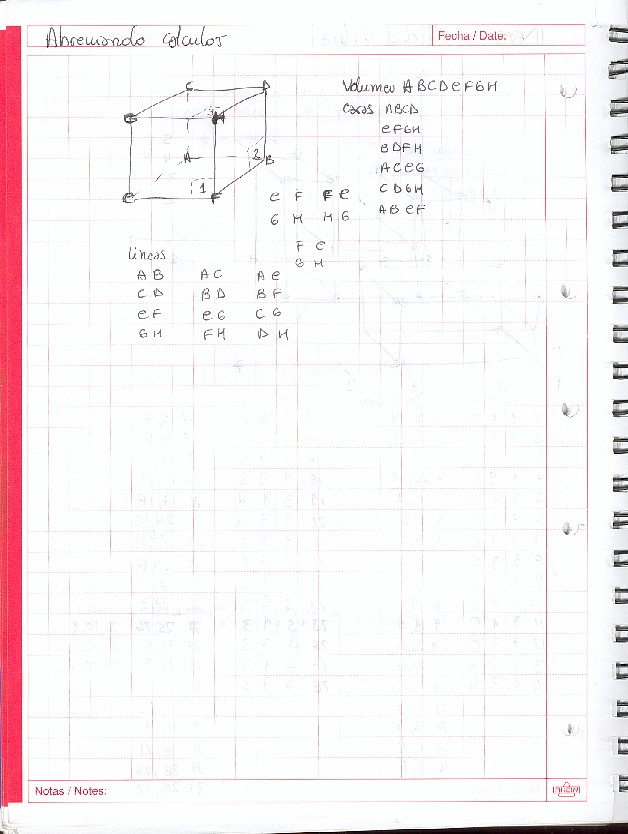 Abreviando calculos
Fecha / Date:
C D
G H
A B
E F
1 2 3
Volumen ABCDEFGH
Caras ABCD
EFGH
BDFH
ACEG
CDGH
ABEF
E F F E
G H H G
F E
G H
Lineas
AB AC AE
CD BD BF
EF EG CG
GH FH DH
Notas / Notes: